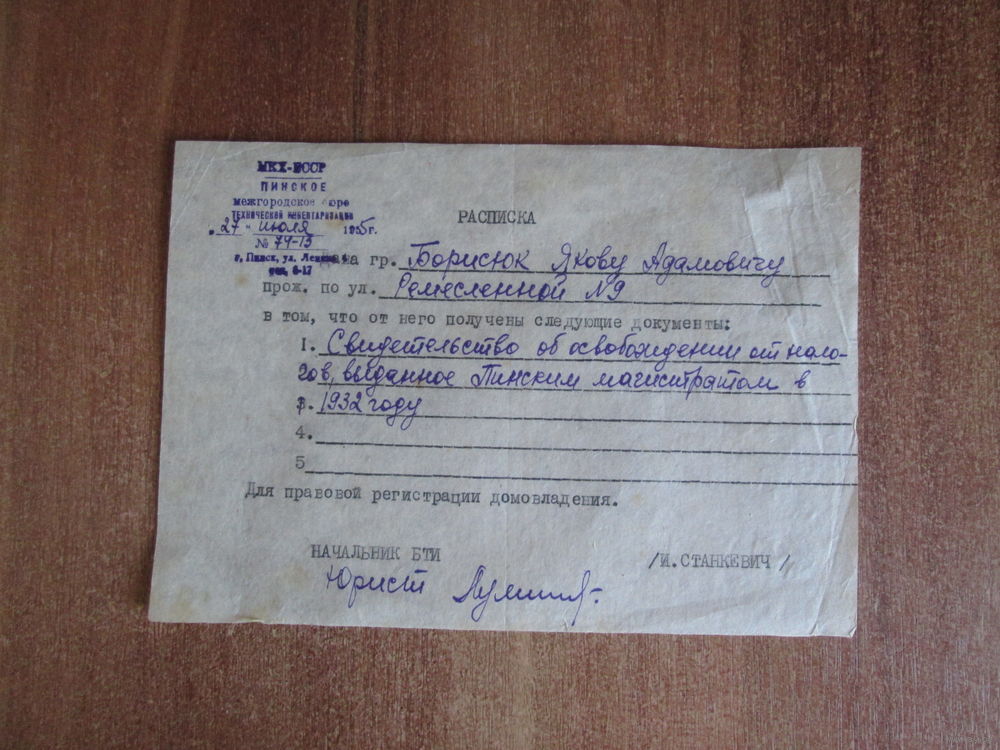 МКХ-БССР
ПИНСКОЕ
межгородское бюро
ТЕХНИЧЕСКОЙ ИНВЕНТАРИЗАЦИИ
„27" июля 1955г.
№ 79-13
г. Пинск, ул.
тел. 6-17
РАСПИСКА
Дана гр. Борисюк Якову Адамовичу
прож. по ул. Ремесленной №9
в том, что от него получены следующие документы:
1. Свидетельство об освобождении от нало-
гов, выданное Пинским магистратом в
3. 1932 году
4.
5
Для правовой регистрации домовладения.
НАЧАЛЬНИК БТИ /И.СТАНКЕВИЧ/
Юрист